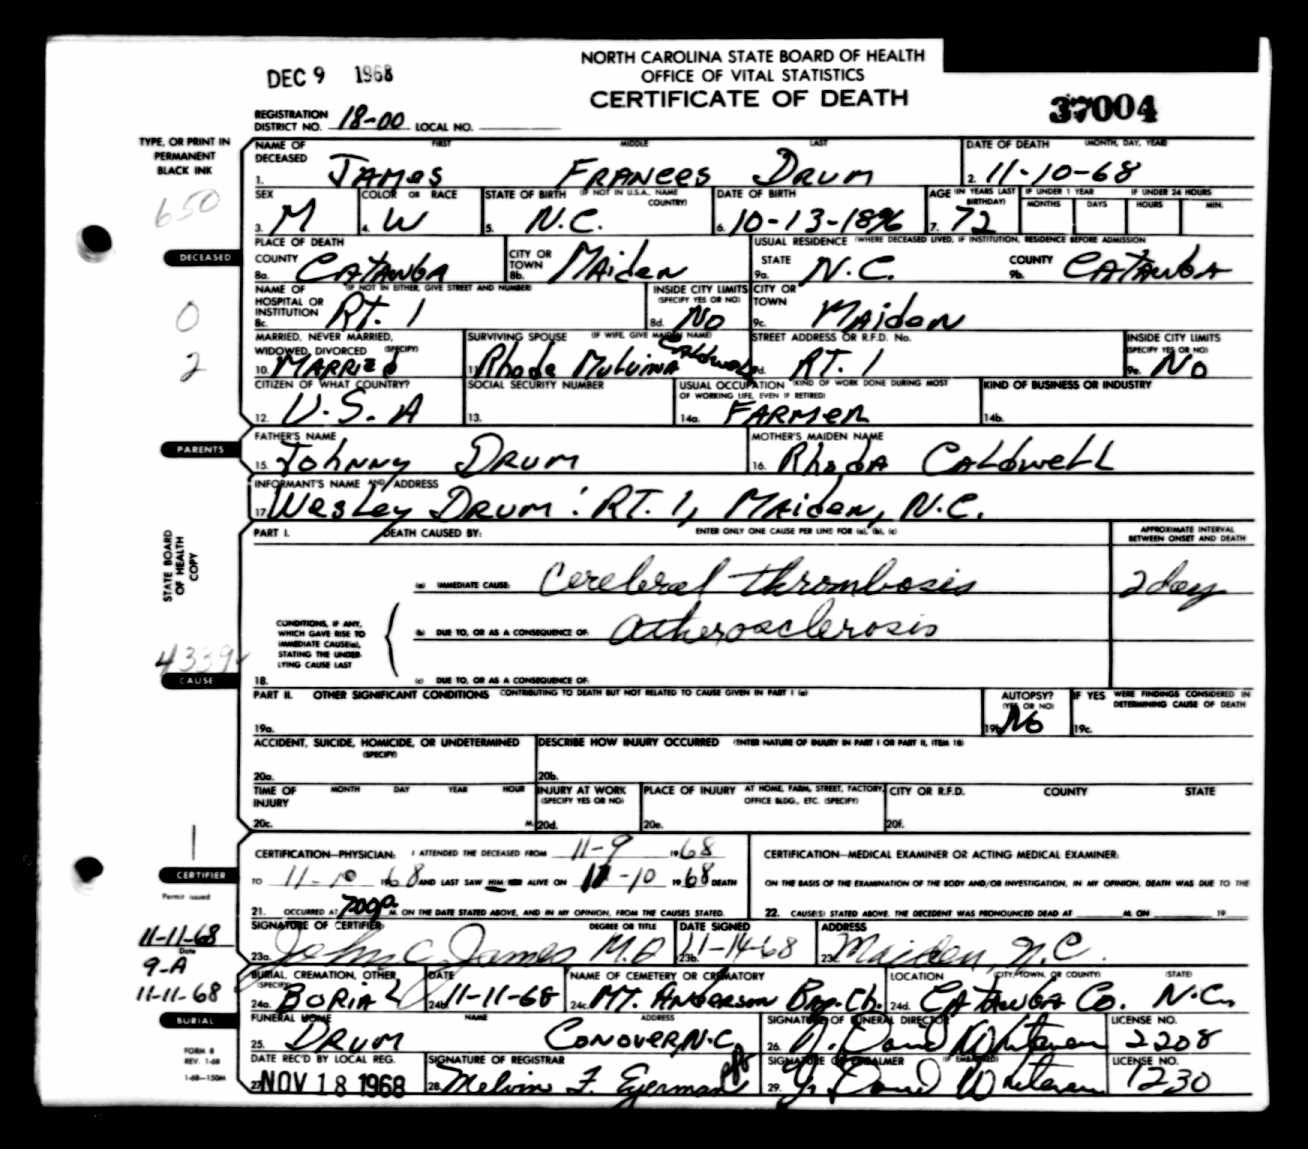 NORTH CAROLINA STATE BOARD OF HEALTH
OFFICE OF VITAL STATISTICS
CERTIFICATE OF DEATH
DEC 9 1968
37004
REGISTRATION DISTRICT NO. 18-00 LOCAL NO.
TYPE, OR PRINT IN PERMANENT BLACK INK
650
NAME OF DECEASED FIRST MIDDLE LAST DATE OF DEATH (MONTH, DAY, YEAR)
1. James Frances Drum 2. 11-10-68
SEX COLOR OR RACE STATE OF BIRTH (IF NOT IN U.S.A., NAME COUNTRY) DATE OF BIRTH AGE (IN YEARS LAST BIRTHDAY) IF UNDER 1 YEAR MONTHS DAYS IF UNDER 24 HOURS HOURS MIN.
3. M 4. W 5. N.C. 6. 10-13-1896 7. 72
DECEASED
PLACE OF DEATH USUAL RESIDENCE (WHERE DECEASED LIVED, IF INSTITUTION, RESIDENCE BEFORE ADMISSION
COUNTY 8a. Catawba CITY OR TOWN 8b. Maiden STATE 9a. N.C. COUNTY 9b. Catawba
NAME OF HOSPITAL OR INSTITUTION (IF NOT IN EITHER, GIVE STREET AND NUMBER) 8c. RT. 1 INSIDE CITY LIMITS (SPECIFY YES OR NO) 8d. No CITY OR TOWN 9c. Maiden
0
MARRIED, NEVER MARRIED, WIDOWED, DIVORCED (SPECIFY) 10. Married SURVIVING SPOUSE (IF WIFE, GIVE MAIDEN NAME) 11. Rhoda Caldwell STREET ADDRESS OR R.F.D. No. 9d. RT. 1 INSIDE CITY LIMITS (SPECIFY YES OR NO) 9e. No
2
CITIZEN OF WHAT COUNTRY? 12. U.S.A SOCIAL SECURITY NUMBER 13. USUAL OCCUPATION (KIND OF WORK DONE DURING MOST OF WORKING LIFE, EVEN IF RETIRED) 14a. Farmer KIND OF BUSINESS OR INDUSTRY 14b.
PARENTS
FATHER'S NAME 15. Johnny Drum MOTHER'S MAIDEN NAME 16. Rhoda Caldwell
INFORMANT'S NAME AND ADDRESS
17. Wesley Drum : RT. 1, Maiden, N.C.
STATE BOARD OF HEALTH COPY
PART I. DEATH CAUSED BY: ENTER ONLY ONE CAUSE PER LINE FOR (a), (b), (c) APPROXIMATE INTERVAL BETWEEN ONSET AND DEATH
(a) IMMEDIATE CAUSE: Cerebral thrombosis 2 day
CONDITIONS, IF ANY, WHICH GAVE RISE TO IMMEDIATE CAUSE(a), STATING THE UNDERLYING CAUSE LAST
(b) DUE TO, OR AS A CONSEQUENCE OF: Atherosclerosis
4339
CAUSE
18. (c) DUE TO, OR AS A CONSEQUENCE OF:
PART II. OTHER SIGNIFICANT CONDITIONS CONTRIBUTING TO DEATH BUT NOT RELATED TO CAUSE GIVEN IN PART I (a) AUTOPSY? (YES OR NO) IF YES WERE FINDINGS CONSIDERED IN DETERMINING CAUSE OF DEATH
19a. 19b. No 19c.
ACCIDENT, SUICIDE, HOMICIDE, OR UNDETERMINED (SPECIFY) DESCRIBE HOW INJURY OCCURRED (ENTER NATURE OF INJURY IN PART I OR PART II, ITEM 18)
20a. 20b.
TIME OF INJURY MONTH DAY YEAR HOUR INJURY AT WORK (SPECIFY YES OR NO) PLACE OF INJURY AT HOME, FARM, STREET, FACTORY, OFFICE BLDG., ETC. (SPECIFY) CITY OR R.F.D. COUNTY STATE
20c. M. 20d. 20e. 20f.
CERTIFIER
CERTIFICATION—PHYSICIAN: I ATTENDED THE DECEASED FROM 11-9 1968
TO 11-10 1968 AND LAST SAW HIM HER ALIVE ON 11-10 1968 DEATH
21. OCCURRED AT 700p M. ON THE DATE STATED ABOVE, AND IN MY OPINION, FROM THE CAUSES STATED.
CERTIFICATION—MEDICAL EXAMINER OR ACTING MEDICAL EXAMINER:
ON THE BASIS OF THE EXAMINATION OF THE BODY AND/OR INVESTIGATION, IN MY OPINION, DEATH WAS DUE TO THE
22. CAUSE(S) STATED ABOVE. THE DECEDENT WAS PRONOUNCED DEAD AT M. ON 19
Permit issued
11-11-68
Date
9-A
11-11-68
SIGNATURE OF CERTIFIER DEGREE OR TITLE DATE SIGNED ADDRESS
23a. John C James M.D 23b. 11-14-68 23c. Maiden, N.C.
BURIAL, CREMATION, OTHER (SPECIFY) DATE NAME OF CEMETERY OR CREMATORY LOCATION (CITY, TOWN, OR COUNTY) (STATE)
24a. Burial 24b. 11-11-68 24c. Mt. Anderson Bap. Ch. 24d. Catawba Co. N.C.
BURIAL
FUNERAL HOME NAME ADDRESS SIGNATURE OF FUNERAL DIRECTOR LICENSE NO.
25. Drum Conover, N.C. 26. 2208
FORM 8
REV. 1-68
1-68—150M
DATE REC'D BY LOCAL REG. SIGNATURE OF REGISTRAR SIGNATURE OF EMBALMER (IF EMBALMED) LICENSE NO.
27. NOV 18 1968 28. Melvin F. Eyerman 29. 1230